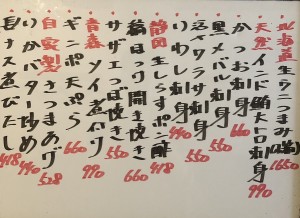 北海道生ウニつまみ 1650
天然インド鮪大トロ刺身 990
かつお刺身 660
黒メバル刺身
ワラサ刺身 550
いわし刺身 440
静岡生しらすポン酢
縞ほっけ開き焼き 660
サザエつぼ焼き 550
青森メイ煮付 990
ギンポ天ぷら 660
自家製さつまあげ 528
いかバター炒め 418
長ナス煮びたし 418